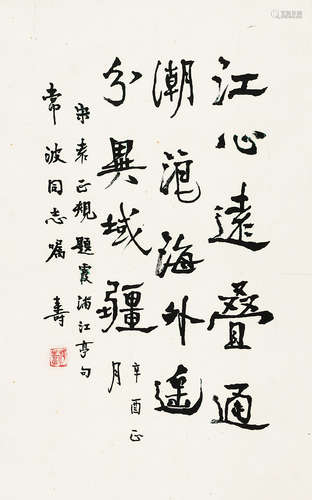 江心遠疊通
潮港海外遙
分異域疆
辛酉正
月
宋袁正規題霞浦江亭句
常波同志嘱 壽